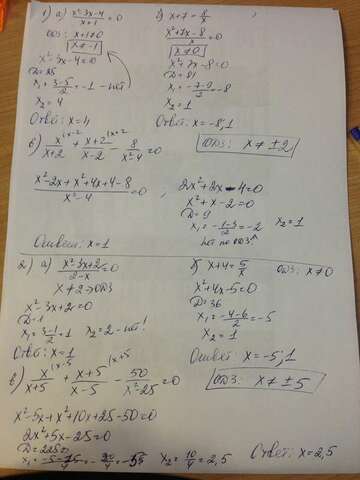 1) а) (x²-3x-4)/(x+1) = 0
ОДЗ: x+1≠0
x≠-1
x²-3x-4=0
D=25
x₁ = (3-5)/2 = -1 - нет
x₂ = 4
Ответ: x=4
б) x+7 = 8/x
(x²+7x-8)/x = 0
x≠0
x²+7x-8=0
D=81
x₁ = (-7-9)/2 = -8
x₂ = 1
Ответ: x=-8;1
в) x/(x+2) + (x+2)/(x-2) - 8/(x²-4) = 0
ОДЗ: x≠±2
(x²-2x+x²+4x+4-8)/(x²-4) = 0
2x²+2x-4=0
x²+x-2=0
D=9
x₁ = (-1-3)/2 = -2 x₂=1
нет по ОДЗ
Ответ: x=1
2) а) (x²-3x+2)/(2-x) = 0
x≠2 → ОДЗ
x²-3x+2=0
D=1
x₁ = (3-1)/2 = 1 x₂=2 - нет!
Ответ: x=1
б) x+4 = 5/x ОДЗ: x≠0
x²+4x-5=0
D=36
x₁ = (-4-6)/2 = -5
x₂ = 1
Ответ: x=-5;1
в) x/(x+5) + (x+5)/(x-5) - 50/(x²-25) = 0
ОДЗ: x≠±5
x²-5x+x²+10x+25-50=0
2x²+5x-25=0
D=225
x₁ = (-5-15)/4 = -20/4 = -5 x₂ = 10/4 = 2,5 Ответ: x=2,5